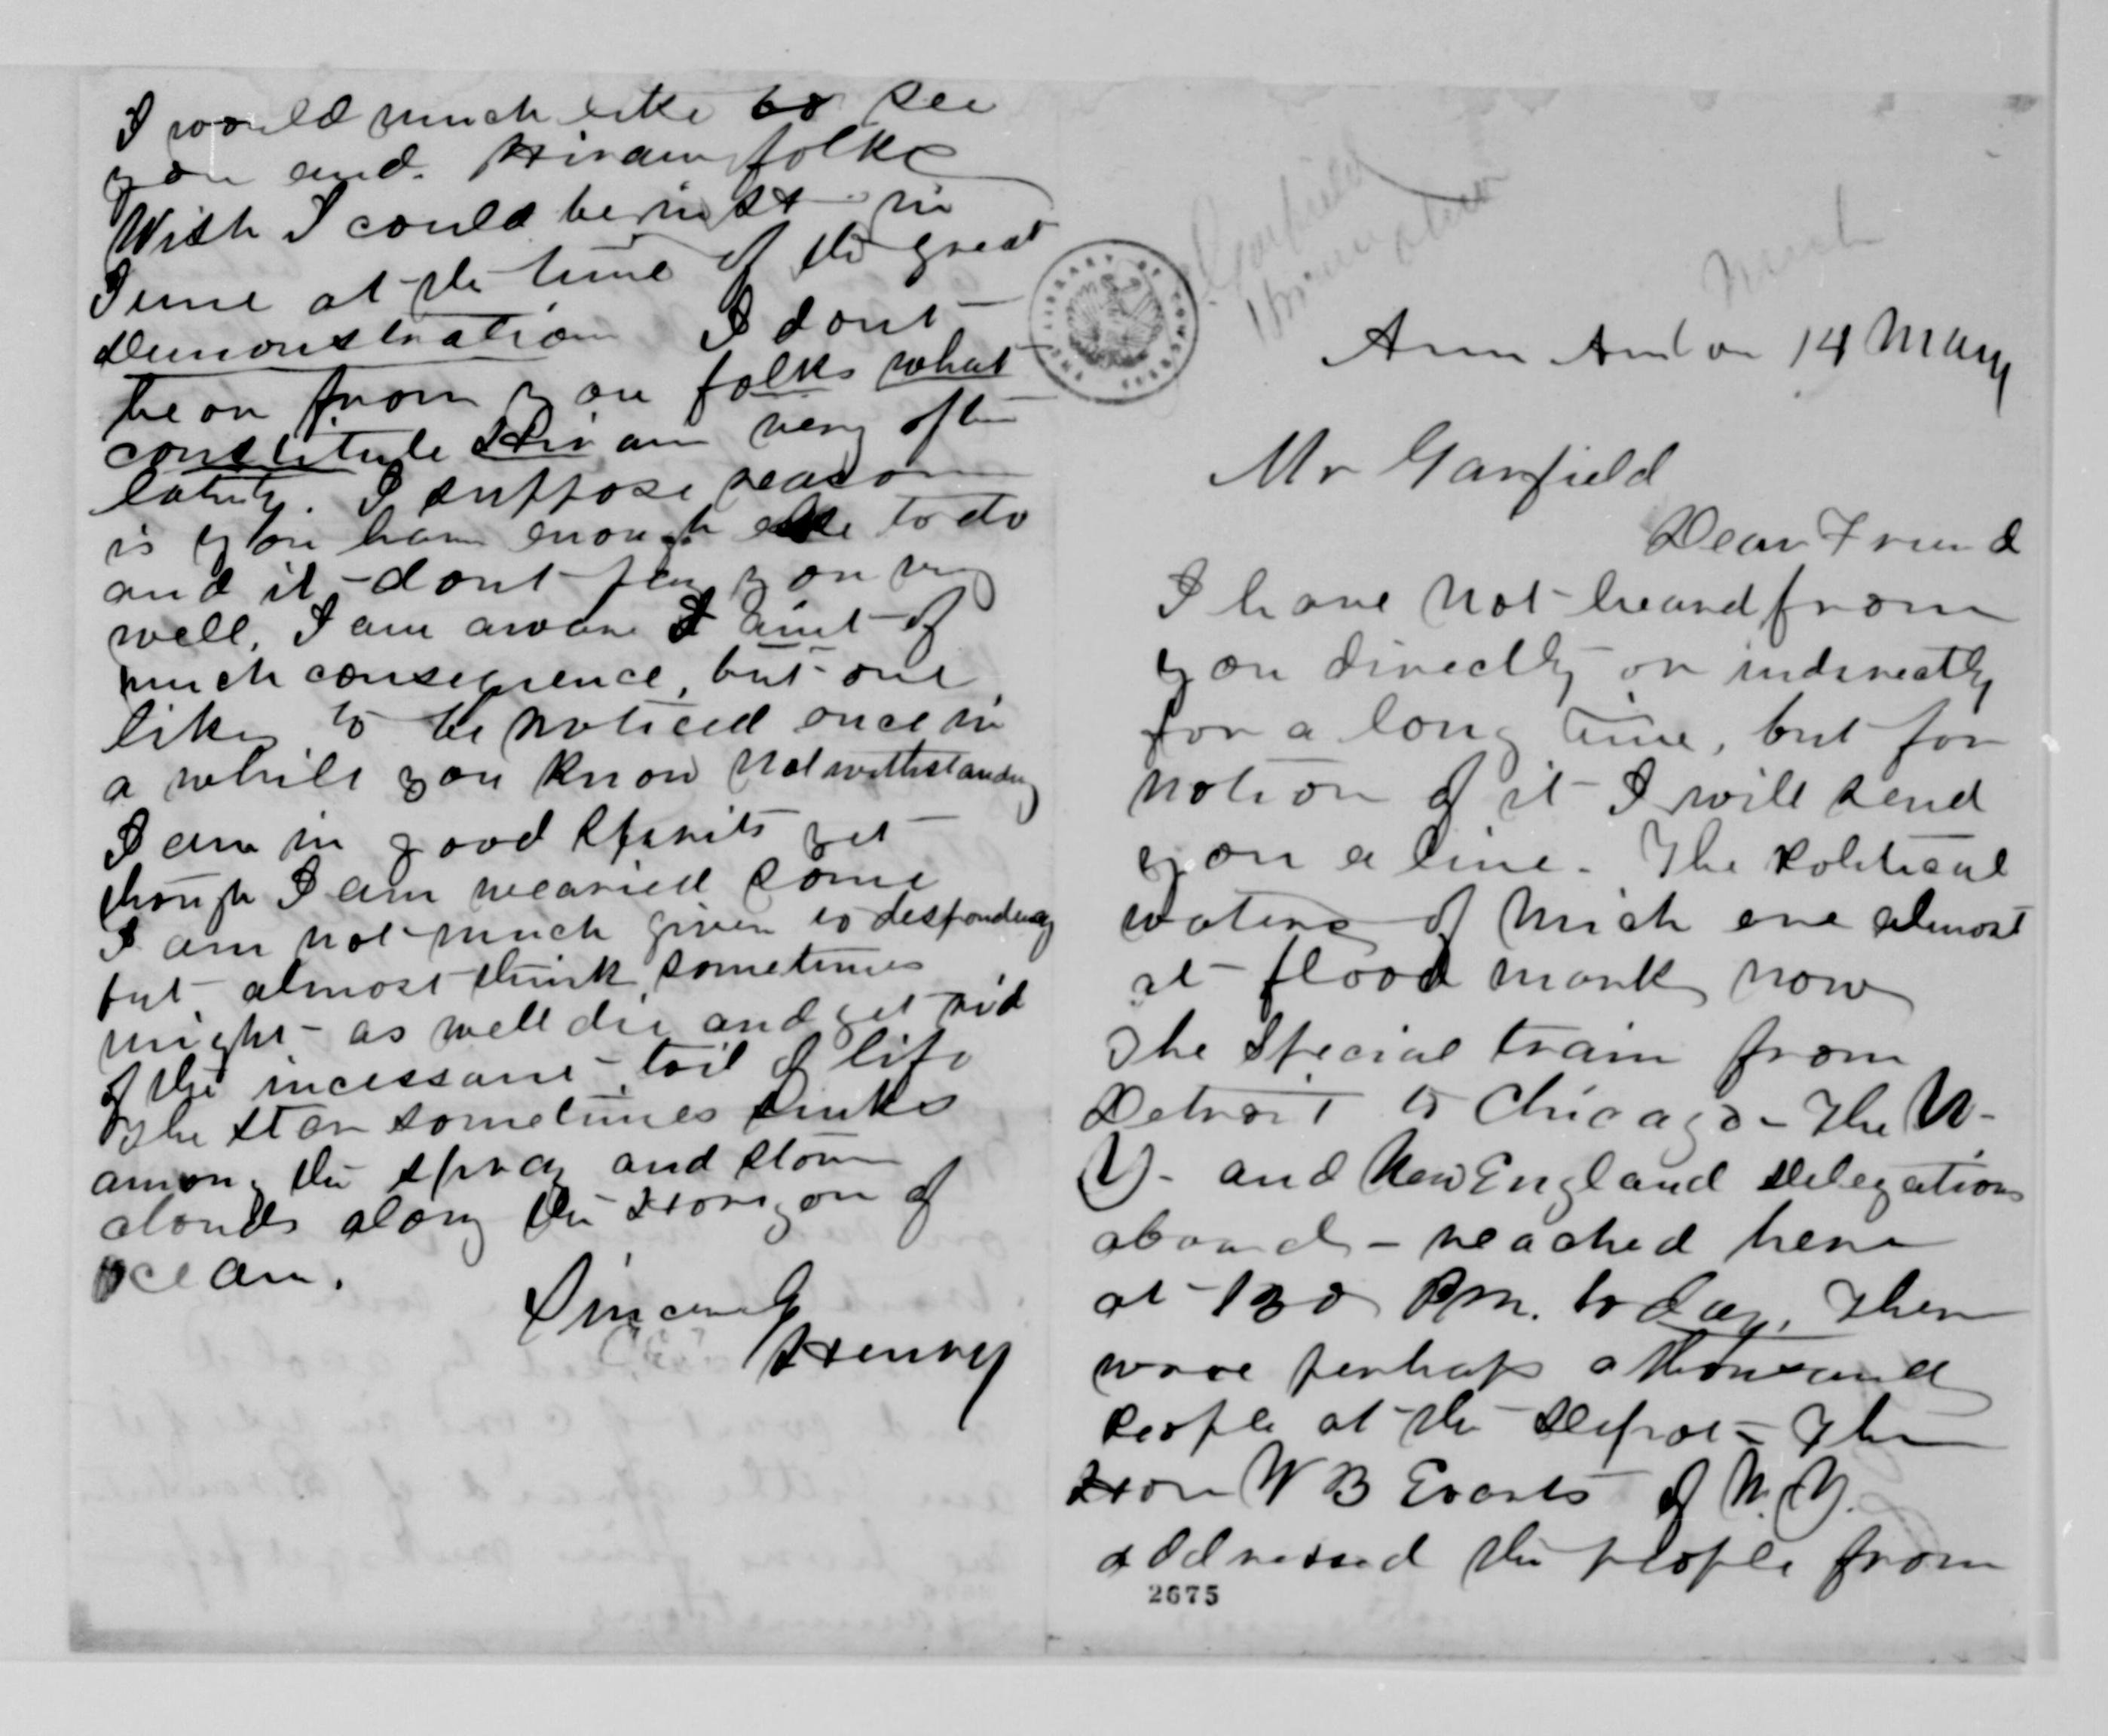 Ann Arbor 14 May
Mr Garfield
Dear Friend
I have not heard from
you directly or indirectly
for a long time, but for
notion of it I will send
you a line. The Political
waters of Mich are almost
at flood mark now
The Special train from
Detroit to Chicago – The N.
Y. and New England Delegations
aboard – reached here
at 130 P.M. to day. There
were perhaps a thousand
People at the Depot – The
Hon W B Evarts of N.Y.
addressed the people from
2675
I would much like to see
you and Hiram folks
Wish I could be just in
June at the time of the great
Demonstration I dont
hear from you folks what
constitute Hiram very often
lately. I suppose reason
is you have enough else to do
and it dont pay you very
well, I am aware I aint of
much consequence, but one
likes to be noticed once in
a while you know Notwithstanding
I am in good spirits yet
though I am wearied some
I am not much given to desponding
but almost think sometimes
might as well die and get rid
of the incessant toil of life
The star sometimes sinks
among the spray and storm
clouds along the Horizon of
ocean.
Sincerely
Henry